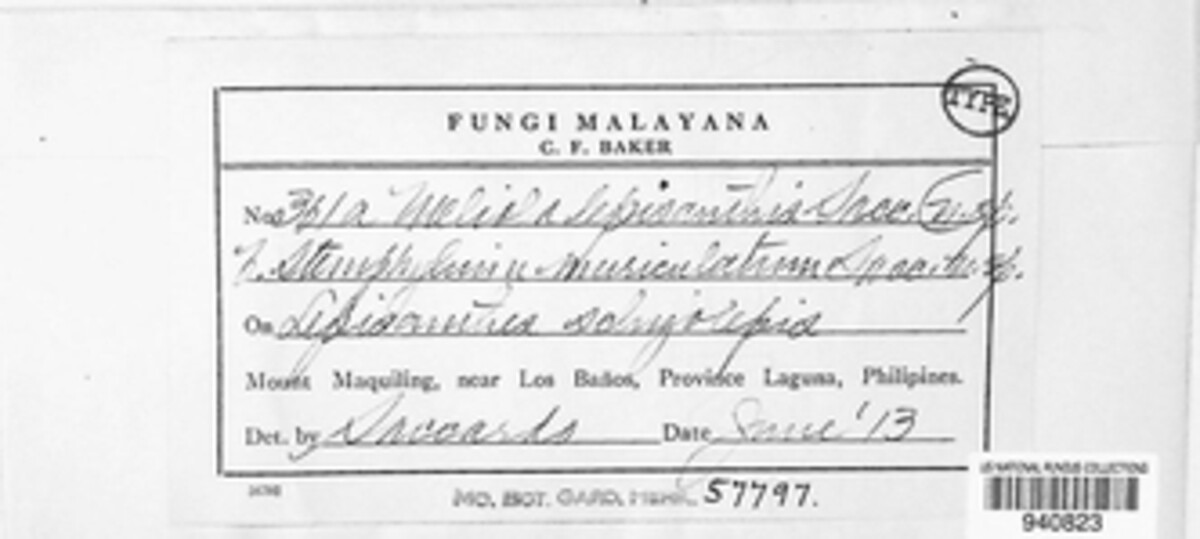 TYPE
FUNGI MALAYANA
C. F. BAKER
No. 361a Meliola lepisanthis Sacc. n. sp.
Stemphylium muriculatum Sacc. n. sp.
On Lepisanthes schizolepis
Mount Maquiling, near Los Baños, Province Laguna, Philipines.
Det. by Saccardo Date June '13
MO. BOT. GARD. HERB. 57797.
US NATIONAL FUNGUS COLLECTIONS
940823